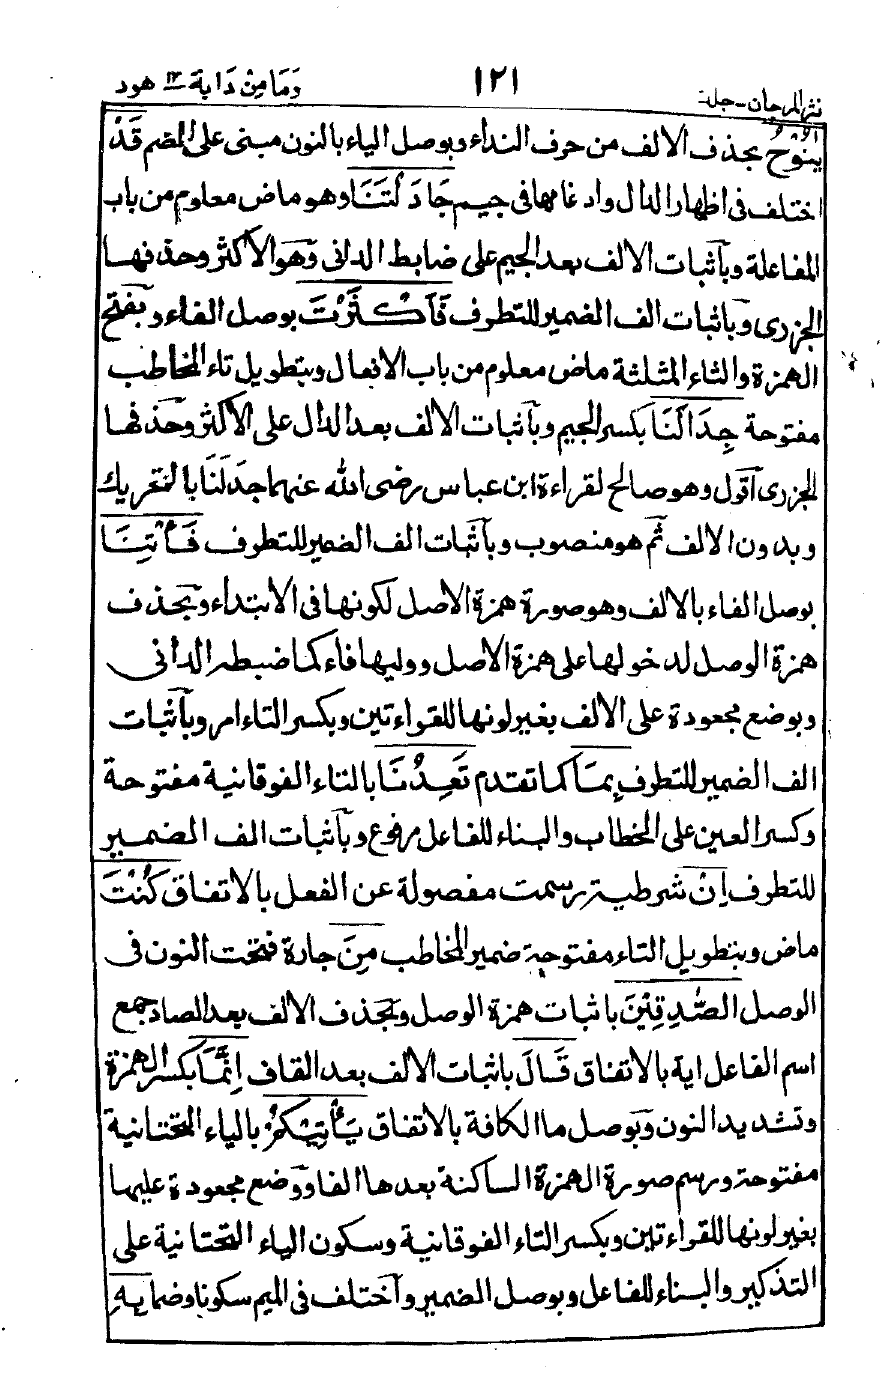 نثر المرجان - جلد ۳
١٢١
وَمَا مِنْ دَابَة ١٢ هود
يٰنُوْحُ بحذف الالف من حرف النداء وبوصل الياء بالنون مبنى على الضم قَدْ
اختلف فى اظهار الدال وادغامها فى جيم جَادَلْتَنَا وهو ماض معلوم من باب
المفاعلة وبآثبات الالف بعد الجيم على ضابط الدانى وَهو الاكثر وحذفها
الجزرى وبآثبات الف الضمير للتطرف فَاَكْثَرْتَ بوصل الفاء وبفتح
الهمزة والثاء المثلثة ماض معلوم من باب الافعال وبتطويل تاء المخاطب
مفتوحة جِدَالَنَا بكسر الجيم وبآثبات الالف بعد الدال على الاكثر وحذفها
الجزرى آقول وهو صالح لقراءة ابن عباس رضى الله عنهما جدَلَنَا بالتحريك
وبدون الالف ثم هو منصوب وبآثبات الف الضمير للتطرف فَأْتِنَا
بوصل الفاء بالالف وهو صورة همزة الاصل لكونها فى الابتداء وبحذف
همزة الوصل لدخولها على همزة الاصل ووليها فاء كما ضبطه الدانى
وبوضع مجعودة على الالف بغير لونها للقراءتين وبكسر التاء امر وبآثبات
الف الضمير للتطرف بِمَا كما تقدم تَعِدُنَا بالتاء الفوقانية مفتوحة
وكسر العين على الخطاب والبناء للفاعل مرفوع وبآثبات الف الضمير
للتطرف اِنْ شرطية رسمت مفصولة عن الفعل بالاتفاق كُنْتَ
ماض وبتطويل التاء مفتوحة ضمير المخاطب مِنَ جارة فتحت النون فى
الوصل الصّٰدِقِيْنَ باثبات همزة الوصل وبحذف الالف بعد الصاد جمع
اسم الفاعل اية بالاتفاق قَالَ باثبات الالف بعد القاف اِنَّمَا بكسر الهمزة
وتشديد النون وبوصل ما الكافة بالاتفاق يَأْتِيْكُمْ بالياء التحتانية
مفتوحة ورسم صورة الهمزة الساكنة بعدها الفا ووضع مجعودة عليها
بغير لونها للقراءتين وبكسر التاء الفوقانية وسكون الياء التحتانية على
التذكير والبناء للفاعل وبوصل الضمير وآختلف فى الميم سكونا وضما بِهِ